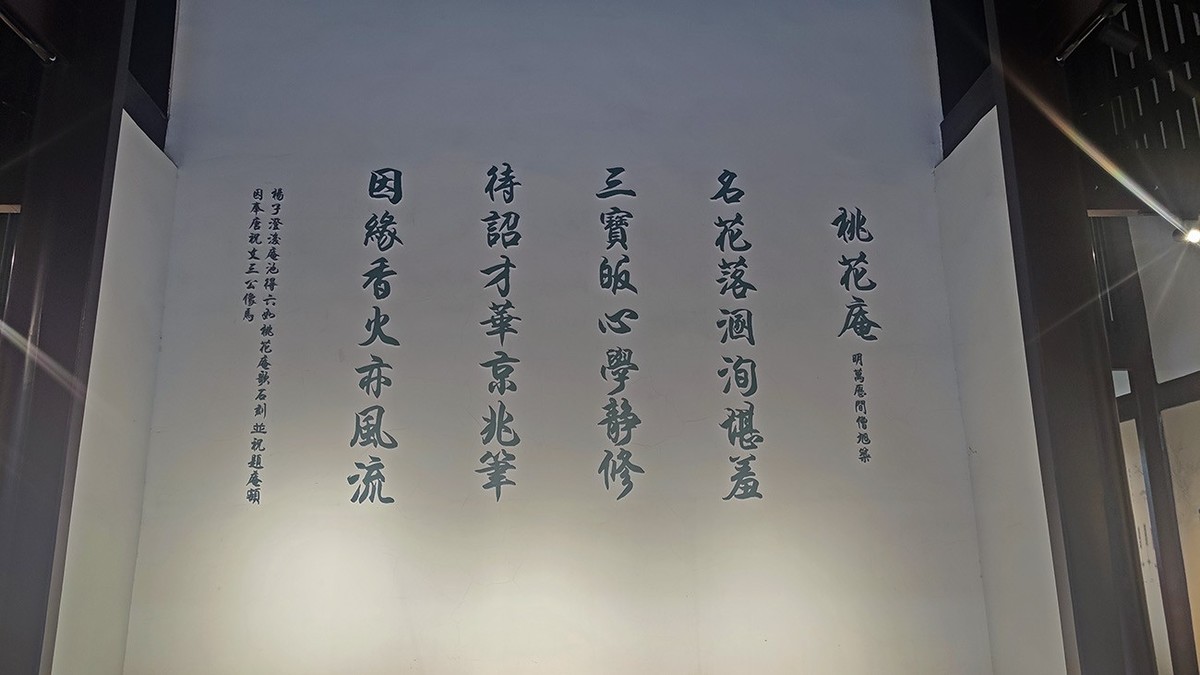 桃花庵
明萬曆間僧旭築
名花落溷洵堪羞
三寶皈心學靜修
待詔才華京兆筆
因緣香火亦風流
楊子澄濬庵池得六如桃花庵歌石刻並祝題庵額
因奉唐祝文三公像焉